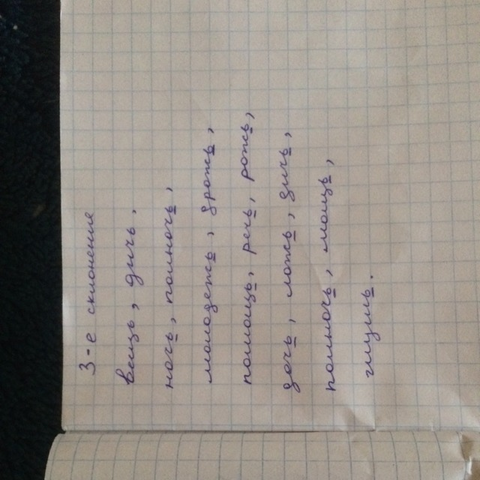 3-е склонение
вещь, дичь.
ночь, полночь,
молодежь, дрожь,
помощь, речь, рожь,
дочь, ложь, дичь,
полночь, мощь,
глушь.